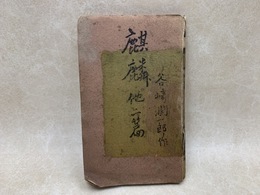 谷崎潤一郎作
麒麟他二篇